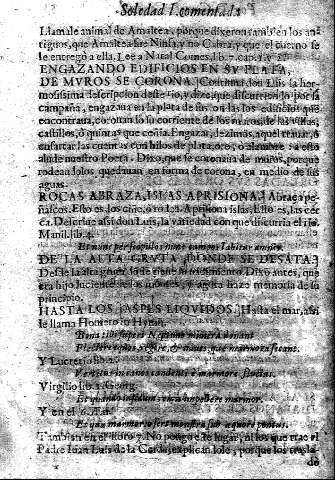 Soledad I. comentada
Llamale animal de Amaltea, porque dixeron tambien los an-
tiguos, que Amaltea fue Ninfa, y no Cabra, y que el cuerno se
le entregò a ella. Lee a Natal Comes, lib. 7. cap.
ENGAZANDO EDIFICIOS EN SV PLATA,
DE MVROS SE CORONA.] Continua don Luis la her-
mosissima descripcion deste rio, y dize que discurriendo por la
campaña, engazaua en la plata de sus ondas los edificios que
encontraua, coronauase su corriente de los muros de las villas,
castillos, ò quintas que ceñia. Engazar, dezimos, aquel trauar, ò
ensartar las cuentas con hilos de plata, oro, o alambre: a esto
alude nuestro Poeta. Dixo, que se coronaua de muros, porque
rodeandolos quedauan en forma de corona, en medio de sus
aguas.
ROCAS ABRAZA, ISLAS APRISIONA.] Abraça pe-
ñascos. Esto es, los ciñe, ò rodea. Aprisiona islas. Esto es, las cer-
ca. Descriue assi don Luis, la variedad con que discurria el rio.
Manil. lib. 4.
Et nunc per scopulos nunc campis labitur amnis.
DE LA ALTA GRVTA DONDE SE DESATA.]
Desde la alta gruta donde tiene su nacimiento. Dixo antes, que
era hijo luciente de los montes, y agora haze memoria de su
principio.
HASTA LOS JASPES LIQVIDOS.] Hasta el mar, assi
le llama Homero in Hymn.
Y Lucrecio lib. 2.
Vertitur in canos candenti marmore fluctus.
Virgilio lib. 1. Georg.
Et quando infidum remis impellere marmor.
Y en el 6. Æn.
Et quae marmoreo fert monstra sub aequore pontus.
Tambien en el libro 7. No pongo este lugar, ni los que trae el
Padre Iuan Luis de la Cerda, explicandole, porque los trasla-
do